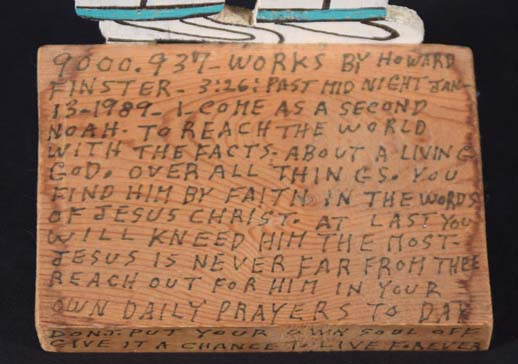 9000.937- WORKS BY HOWARD
FINSTER- 3:26: PAST MID NIGHT JAN-
13-1989- I COME AS A SECOND
NOAH. TO REACH THE WORLD
WITH THE FACTS. ABOUT A LIVING
GOD. OVER ALL THINGS. YOU
FIND HIM BY FAITH IN THE WORDS
OF JESUS CHRIST. AT LAST YOU
WILL KNEED HIM THE MOST-
JESUS IS NEVER FAR FROM THEE
REACH OUT FOR HIM IN YOUR
OWN DAILY PRAYERS TO DAY
DONT. PUT YOUR OWN SOUL OFF
GIVE IT A CHANCE TO LIVE FOREVER